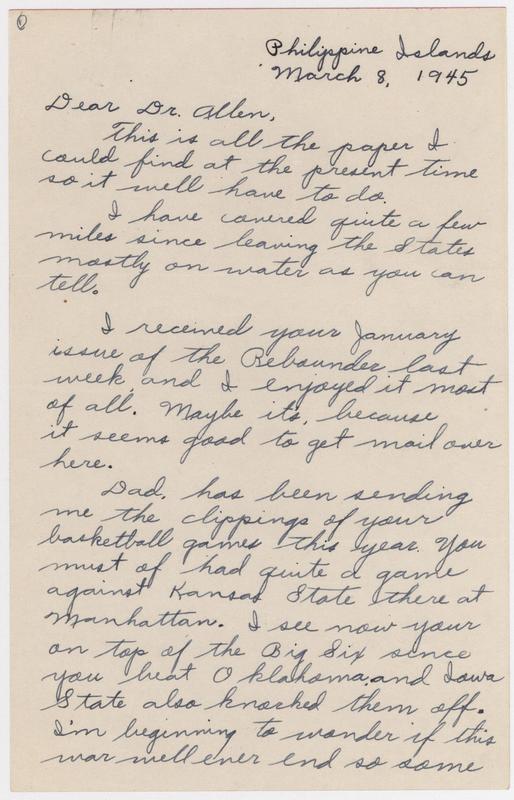 Philippine Islands
March 8, 1945
Dear Dr. Allen,
This is all the paper I
could find at the present time
so it well have to do.
I have covered quite a few
miles since leaving the States
mostly on water as you can
tell.
I received your January
issue of the Rebounder last
week, and I enjoyed it most
of all. Maybe it's, because
it seems good to get mail over
here.
Dad, has been sending
me the clippings of your
basketball games this year. You
must of had quite a game
against Kansas State there at
Manhattan. I see now your
on top of the Big Six since
you beat Oklahoma, and Iowa
State also knocked them off.
I'm beginning to wonder if this
war well ever end so some